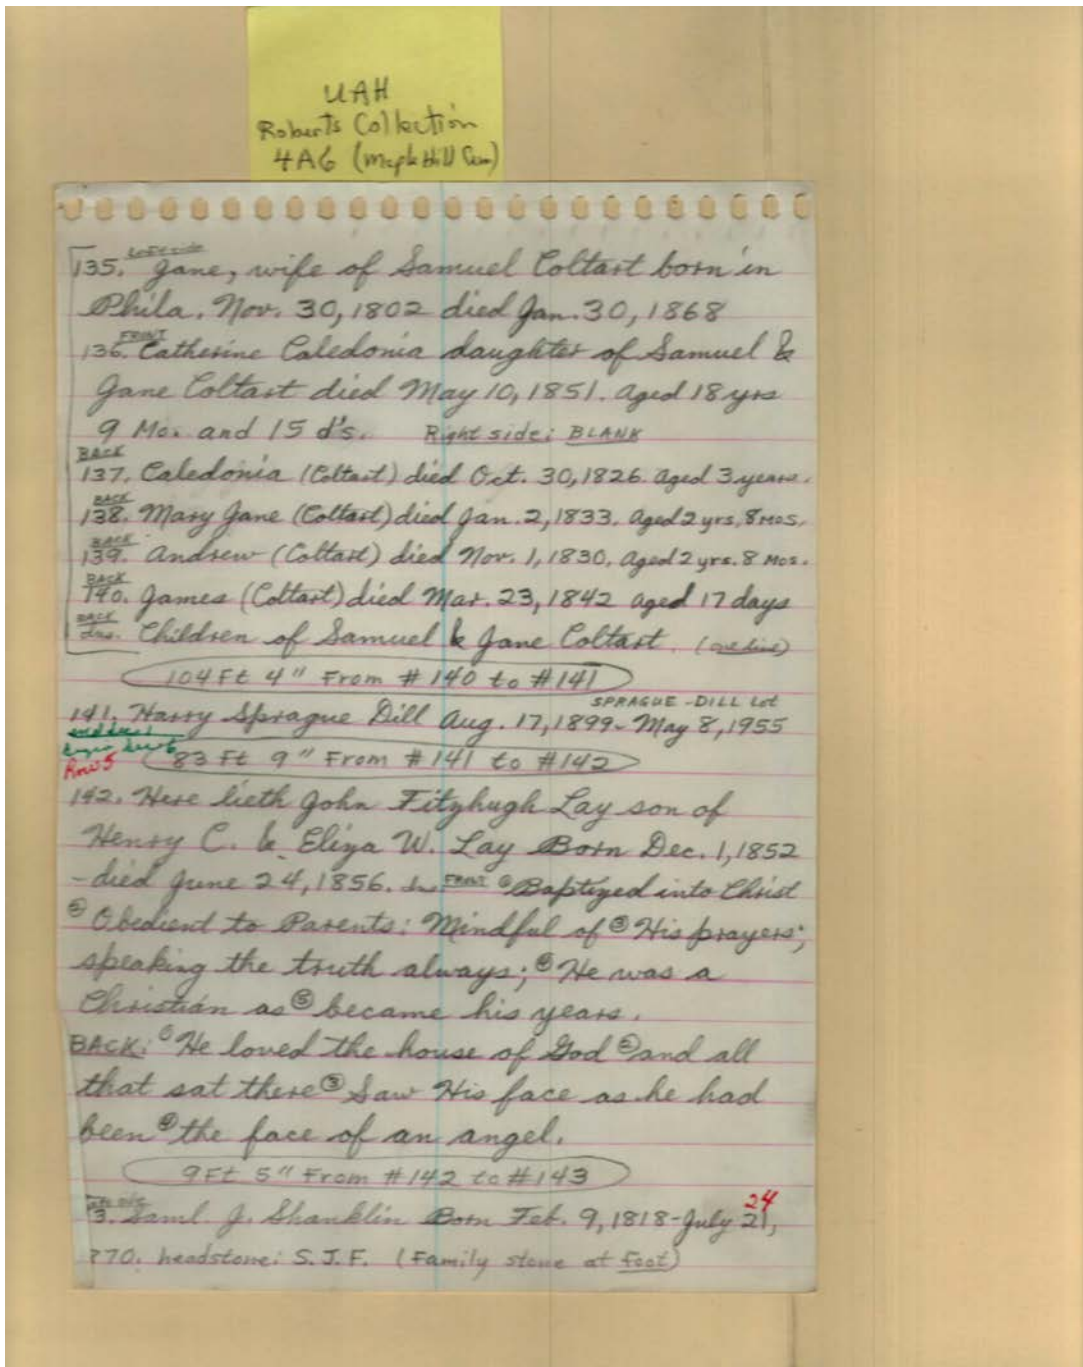 UAH
Roberts Collection
4A6 (Maple Hill Cem)
Left side
135. Jane, wife of Samuel Coltart born in
Phila. Nov. 30, 1802 died Jan. 30, 1868
FRONT
136. Catherine Caledonia daughter of Samuel &
Jane Coltart died May 10, 1851. Aged 18 yrs
9 Mo. and 15 d's. Right side: BLANK
BACK
137. Caledonia (Coltart) died Oct. 30, 1826. Aged 3 years.
BACK
138. Mary Jane (Coltart) died Jan. 2, 1833. Aged 2 yrs, 8 Mos.
BACK
139. Andrew (Coltart) died Nov. 1, 1830, Aged 2 yrs. 8 Mos.
BACK
140. James (Coltart) died Mar. 23, 1842 aged 17 days
BACK
Children of Samuel & Jane Coltart. (one line)
104 Ft 4" From # 140 to # 141
SPRAGUE - DILL Lot
141. Harry Sprague Dill Aug. 17, 1899 - May 8, 1955
Row 5
83 Ft 9" From # 141 to # 142
142. Here lieth John Fitzhugh Lay son of
Henry C. & Eliza W. Lay Born Dec. 1, 1852
- died June 24, 1856. FRONT ① Baptized into Christ
② Obedient to Parents: Mindful of ③ His prayers;
speaking the truth always; ④ He was a
Christian as ⑤ became his years.
BACK: ① He loved the house of God ② and all
that sat there ③ Saw His face as he had
been ④ the face of an angel.
9 Ft 5" From # 142 to # 143
24
3. Saml. J. Shanklin Born Feb. 9, 1818 - July 21,
870. headstone: S. J. F. (Family stone at foot)